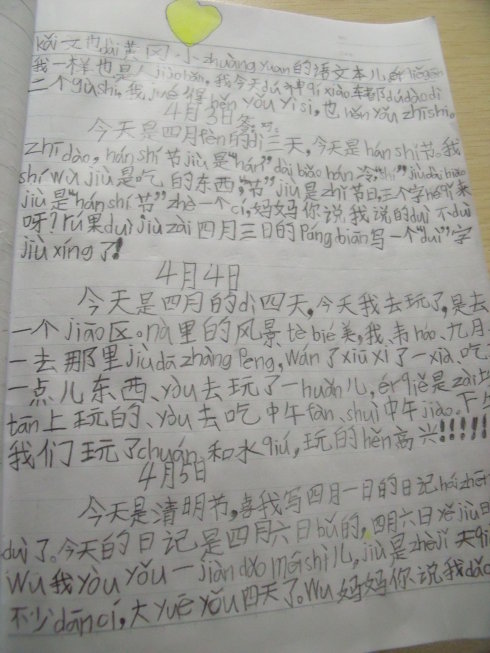 的语文本儿,
我一样也是人jiào hǎn,我今天dú
三个gùshi,我jué得hěn yǒu yìsi,也hěn yǒu zhīshi。
4月3日
今天是四月fèn的dì三天,今天是hánshí节。我
zhī dào,hánshí节jiù是“hán”dài biǎo hán冷“shí”jiù dài biǎo
shí wù jiù是吃的东西“节”jiù是zhǐ节日,三个字hé qǐ来
jiù是“hánshí节”zhè一个cí,妈妈你说我说的duì不duì
呀?rú果duì jiù zài四月三日的Páng biān写一个“duì”字
jiù xíng了!
4月4日
今天是四月的dì四天,今天我去玩了,是去
一个jiāo区。nà里的风景tè bié美,我、韦háo、九月
一去那里jiù dā zhàng Peng,wán了xiū xi了一xià、吃
一点儿东西、yòu去玩了一huǎn儿,ér qiě是zài
tān上玩的、yòu去吃中午fàn、shuì中午jiào。下
我们玩了chuán和水qiú,玩的hěn高兴!!!!!
4月5日
今天是清明节,我写四月一日的日记
duì了。今天的日记是四月六日bǔ的,四月六日yě jiù
Wu我yòu yǒu一jiàn dǎo méi shì儿,jiù是zhè jǐ天
不少dān cí,大yuē yǒu四天了。Wu妈妈你说我